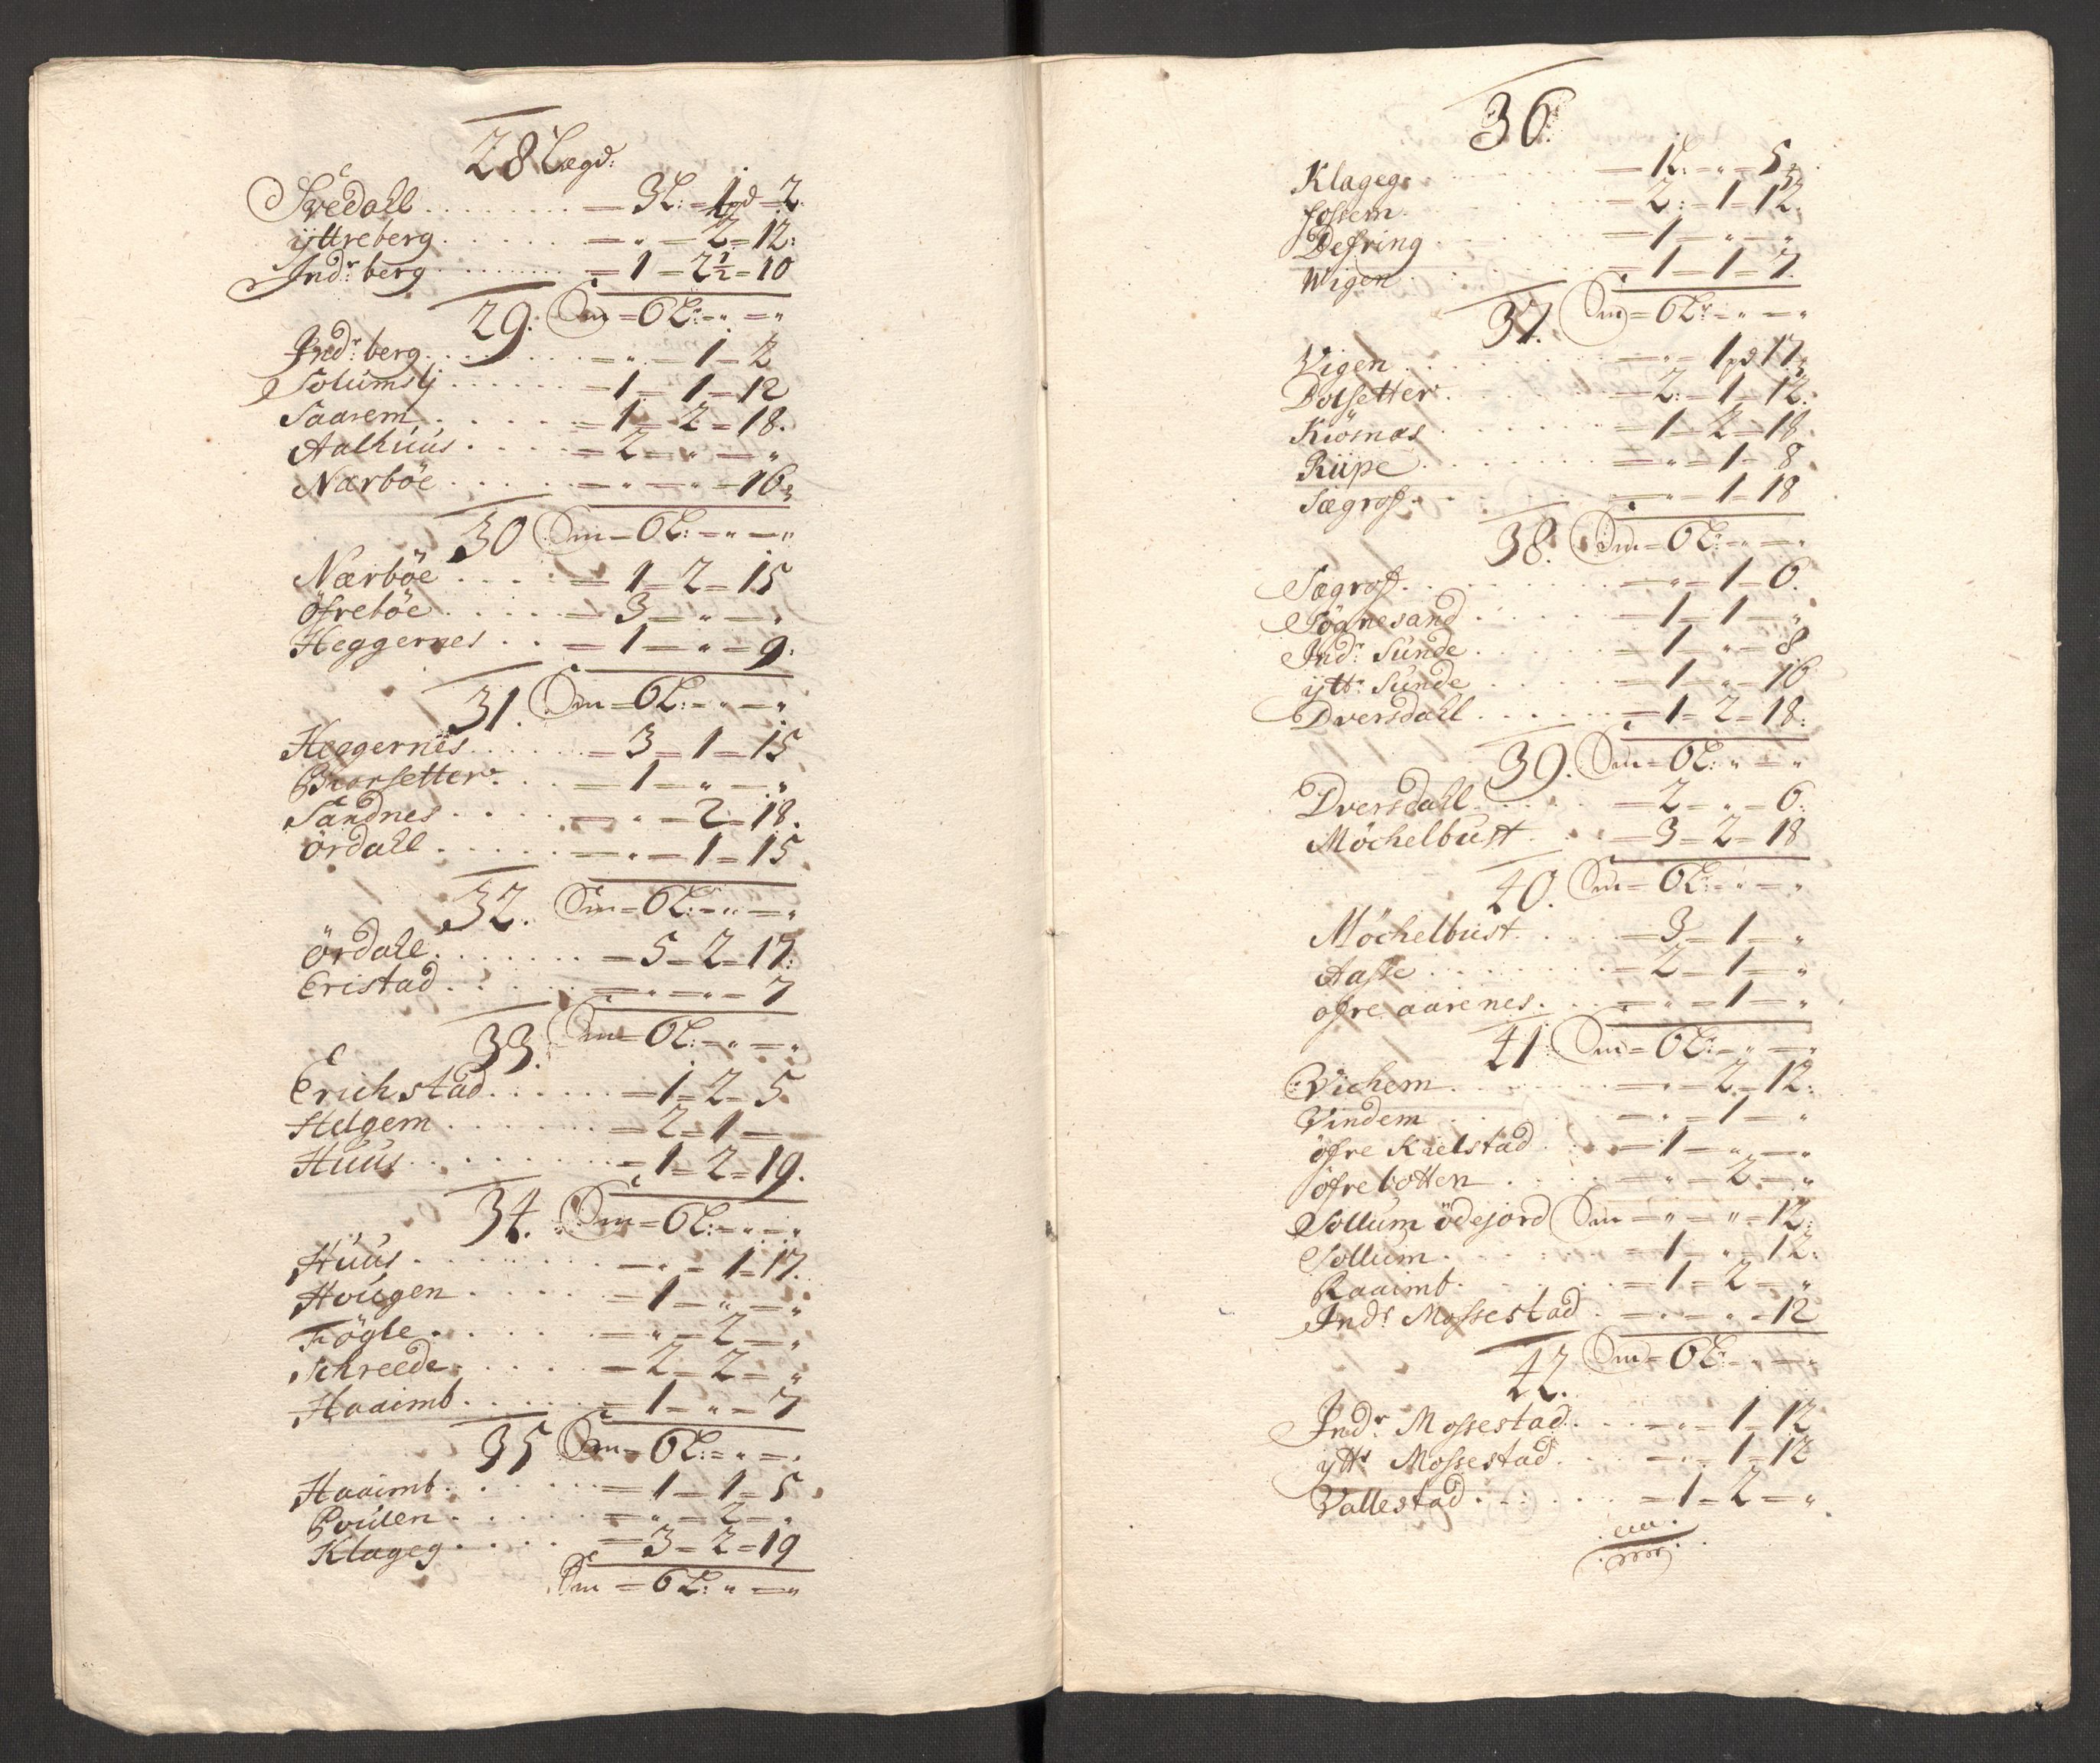 28 Lægd:
Svedall . . . . . . . . = 3L: = 1pd = 2.
ÿttreberg . . . . . . = „ = 2 = 12:
Indr: berg . . . . . . . = 1 = 2½ = 10
29. Sm = 6L: = „ = „
Indr: berg . . . . . . . = „ = 1 = 2
Solumslj . . . . . . = 1 = 1 = 12
Saarem . . . . . = 1 = 2 = 18.
Aalhuus . . . . = 2 = „ = „
Nærböe . . . . . = „ = „ = 16:
30 Sm = 6L: = „ = „
Nærböe . . . . = 1 = 2 = 15
öfreböe . . . . = 3 = „ = „
Heggernes . . = 1 = „ = 9:
31. Sm = 6L: = „ = „
Heggernes . . . . . = 3 = 1 = 15
Biorsetter . . = 1 = „ = „
Sandnes . . . . = „ = 2 = 18.
ördall . . . . . = „ = 1 = 15
32. Sm = 6L: = „ = „
ördall . . . . . . . = 5 = 2 = 17:
Eristad . . . . . = „ = „ = 7
33. Sm = 6L: = „ = „
Erichstad . . . . . = 1 = 2 = 5
Helgem . . . . . . = 2 = 1 =
Huus . . . . . . . . = 1 = 2 = 19.
34. Sm = 6L: = „ = „
Huus . . . . . . . . = „ = 1 = 17.
Hougen . . . . . = 1 = „ = „
Fögle . . . . . . = „ = 2 = „
Schreede . . . . = 2 = 2 = „
Haaimb . . . . . = 1 = „ = 7
35 Sm = 6L: = „ = „
Haaimb . . . . . = 1 = 1 = 5
Boulen . . . . . . = „ = 2 = „
Klageg . . . . . = 3 = 2 = 19
Sm = 6L: „ = „
36.
Klageg . . . . . . . = 1L: = „ = 5:
fossem . . . . . . = 2: = 1 = 12:
Defring . . . . . = 1 = „ = „
Wigen . . . . . . = 1 = 1 = 7.
37. Sm = 6L: = „ = „
Vigen . . . . . . = „ = 1pd 17:
Dolsetter . . . . . = 2: = 1 = 12:
Kiösnas . . . . . = 1 = 2 = 18
Riipe . . . . . . . = „ = 1 = 8
Sægros . . . . . = „ = 1 = 18
38. Sm = 6L: = „ = „
Sægros . . . . . . . = „ = 1 = 6.
Sögnesand . . . . . = 1 = 1 = „
Indr: Sunde . . . . . = 1 = „ = 8
ÿttr: Sunde . . . . . = 1 = „ = 16
Dversdall . . . . . = 1 = 2 = 18:
39. Sm = 6L: „ = „
Dversdall . . . . . = 2 = „ = 6:
Möchelbust . . . = 3 = 2 = 18
40. Sm = 6L: = „ = „
Möchelbust . . . . = 3 = 1 = „
Aasse . . . . . . . = 2 = 1 = „
öfre aarenes . . . = „ = 1 = „
41: Sm = 6L: = „ = „
Vichem . . . . . . . = „ = 2 = 12:
Vindem . . . . . . = „ = 1 = „
öfre Kielstad . . . = 1 = „ = „
öfrebotten . . . . = „ = 2 = „
Sollum ödejord Sm = „ = „ = 12:
Sollum . . . . . . = 1 = „ = 12:
Raaimb . . . . . . = 1 = 2 = „
Indr Mossestad . = „ = „ = 12
42. Sm = 6L: = „ = „
Indr: Mossestad . . . = „ = 1 = 12
ÿttr Mossestad . . . = „ = 1 = 12
Vallestad . . . . . . = 1 = 2 = „